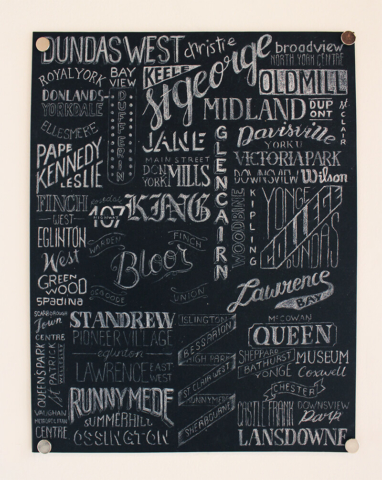 DUNDAS WEST
christie
broadview
NORTH YORK CENTRE
ROYAL YORK
BAY
VIEW
KEELE
St george
OLD MILL
DONLANDS
YORKDALE
DUFFERIN
MIDLAND
DUP
ONT
ST CLAIR
ELLESMERE
JANE
GLENCAIRN
Davisville
YORK U
PAPE
KENNEDY
LESLIE
MAIN STREET
DON
YORK
MILLS
VICTORIA PARK
DOWNSVIEW
Wilson
FINCH
WEST
KING
WOODBINE
KIPLING
YONGE
COLLEGE
DUNDAS
EGLINTON
West
WARDEN
FINCH
Bloor
GREEN
WOOD
SPADINA
UNION
Lawrence
BAY
SCARBOROUGH
Town
CENTRE
ST ANDREW
PIONEER VILLAGE
eglinton
LAWRENCE
EAST
WEST
ISLINGTON
BESSARION
HIGH PARK
ST CLAIR WEST
RUNNYMEDE
SHERBOURNE
MCCOWAN
QUEEN
SHEPPARD
BATHURST
YONGE
MUSEUM
Coxwell
QUEEN'S PARK
ST PATRICK
WELLESLEY
RUNNYMEDE
SUMMERHILL
OSSINGTON
CHESTER
CASTLE FRANK
DOWNSVIEW
Park
VAUGHAN
METROPOLITAN
CENTRE
LANSDOWNE